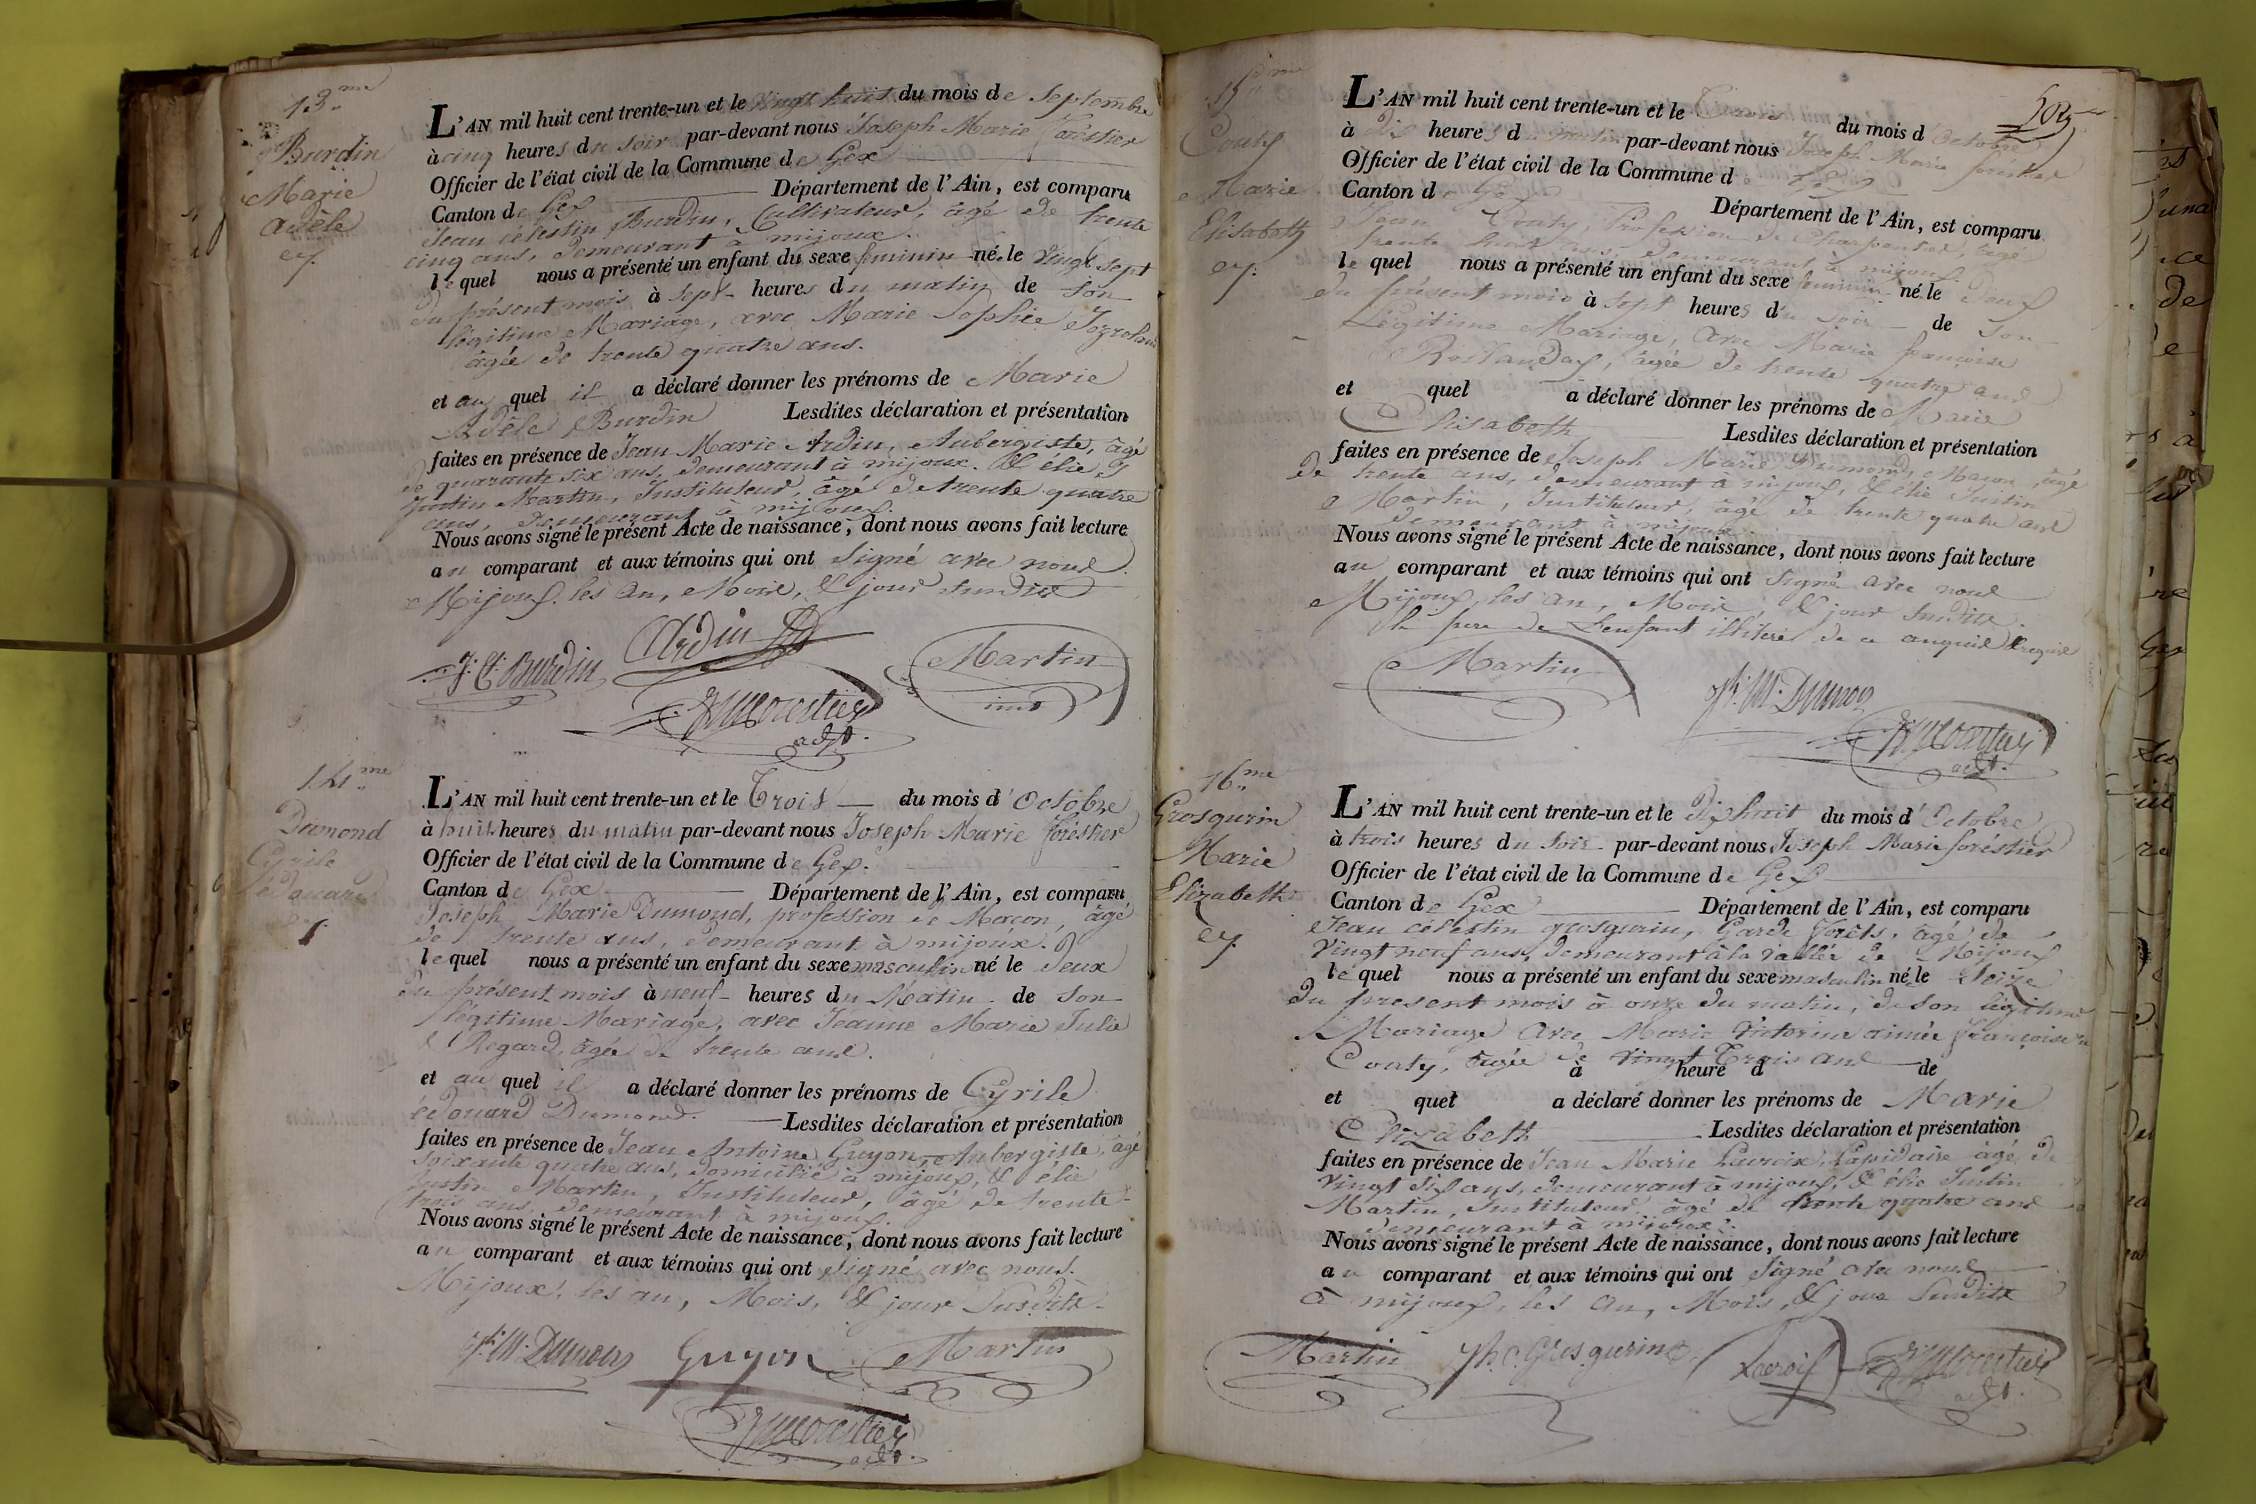 13.me
Burdin
Marie
adèle
L'AN mil huit cent trente-un et le vingt huit du mois de Septembre
à cinq heures du soir par-devant nous Joseph Marie Forestier
Officier de l'état civil de la Commune de Gex
Canton de Gex Département de l'Ain, est comparu
Jean célestin Burdin, Cultivateur, âgé de trente
cinq ans, demeurant à mijoux.
lequel nous a présenté un enfant du sexe feminin né le vingt sept
du présent mois à sept heures du matin de son
légitime Mariage, avec Marie Sophie
âgée de trente quatre ans.
et au quel il a déclaré donner les prénoms de Marie
Adèle Burdin Lesdites déclaration et présentation
faites en présence de Jean Marie Ardin, Aubergiste, âgé
de quarante six ans, demeurant à mijoux. & élie
Justin Martin, Instituteur, âgé de trente quatre
ans, demeurant à mijoux.
Nous avons signé le présent Acte de naissance, dont nous avons fait lecture
au comparant et aux témoins qui ont signé avec nous
Mijoux, les an, Mois, & jour susdits
Ardin
J. C. Burdin
Martin
adjt.
14.me
Dumond
Cyrile
édouard
L'AN mil huit cent trente-un et le Trois du mois d'Octobre
à huit heures du matin par-devant nous Joseph Marie forestier
Officier de l'état civil de la Commune de Gex.
Canton de Gex Département de l'Ain, est comparu
Joseph Marie Dumond, profession de Maçon, âgé
de trente ans, demeurant à mijoux.
lequel nous a présenté un enfant du sexe masculin né le deux
du présent mois à neuf heures du Matin de son
légitime Mariage, avec Jeanne Marie Julie
Regard, âgée de trente ans.
et au quel il a déclaré donner les prénoms de Cyrile
édouard Dumond. Lesdites déclaration et présentation
faites en présence de Jean Antoine Guyon, Aubergiste, âgé
soixante quatre ans, domicilié à mijoux, & élie
Justin Martin, Instituteur, âgé de trente
trois ans, demeurant à mijoux.
Nous avons signé le présent Acte de naissance, dont nous avons fait lecture
au comparant et aux témoins qui ont signé avec nous.
Mijoux, les an, Mois, & jour susdits.
Guyon
Martin
adjt.
15.me
Couty
Marie
Elisabeth
L'AN mil huit cent trente-un et le Trois du mois d'Octobre
à dix heures du matin par-devant nous Joseph Marie forestier
Officier de l'état civil de la Commune de Gex
Canton de Gex Département de l'Ain, est comparu
Jean Couty, Profession de Charpentier, âgé
trente huit ans, demeurant à mijoux
lequel nous a présenté un enfant du sexe feminin né le deux
du présent mois à sept heures du soir de son
Légitime Mariage, avec Marie françoise
âgée de trente quatre ans
et quel a déclaré donner les prénoms de Marie
Elisabeth Lesdites déclaration et présentation
faites en présence de Joseph Marie Dumond, Maçon, âgé
de trente ans, demeurant à mijoux, & élie Justin
Martin, Instituteur, âgé de trente quatre ans
demeurant à mijoux
Nous avons signé le présent Acte de naissance, dont nous avons fait lecture
au comparant et aux témoins qui ont signé avec nous
Mijoux, les an, Mois, & jour susdits.
le pere de L'enfant illiteré de ce enquis & requis
Martin
adjt.
16.me
Grosgurin
Marie
Elizabeth
L'AN mil huit cent trente-un et le Dix huit du mois d'Octobre
à trois heures du soir par-devant nous Joseph Marie forestier
Officier de l'état civil de la Commune de Gex
Canton de Gex Département de l'Ain, est comparu
Jean célestin grosgurin, Garde forêts, âgé de
Vingt neuf ans, demeurant à la vallée de Mijoux
lequel nous a présenté un enfant du sexe masculin né le Seize
du present mois à onze du matin, de son légitime
Mariage avec Marie Victorine aimée françoise
Couty, âgée de vingt Trois ans
à heure d de
et quel a déclaré donner les prénoms de Marie
Elizabeth Lesdites déclaration et présentation
faites en présence de Jean Marie Lacroix, Lapidaire âgé de
Vingt six ans, demeurant à mijoux, & élie Justin
Martin, Instituteur, âgé de trente quatre ans
demeurant à mijoux.
Nous avons signé le présent Acte de naissance, dont nous avons fait lecture
au comparant et aux témoins qui ont signé avec nous
à mijoux, les an, Mois, & jour susdits
Martin
Grosgurin
Lacroix
adjt.